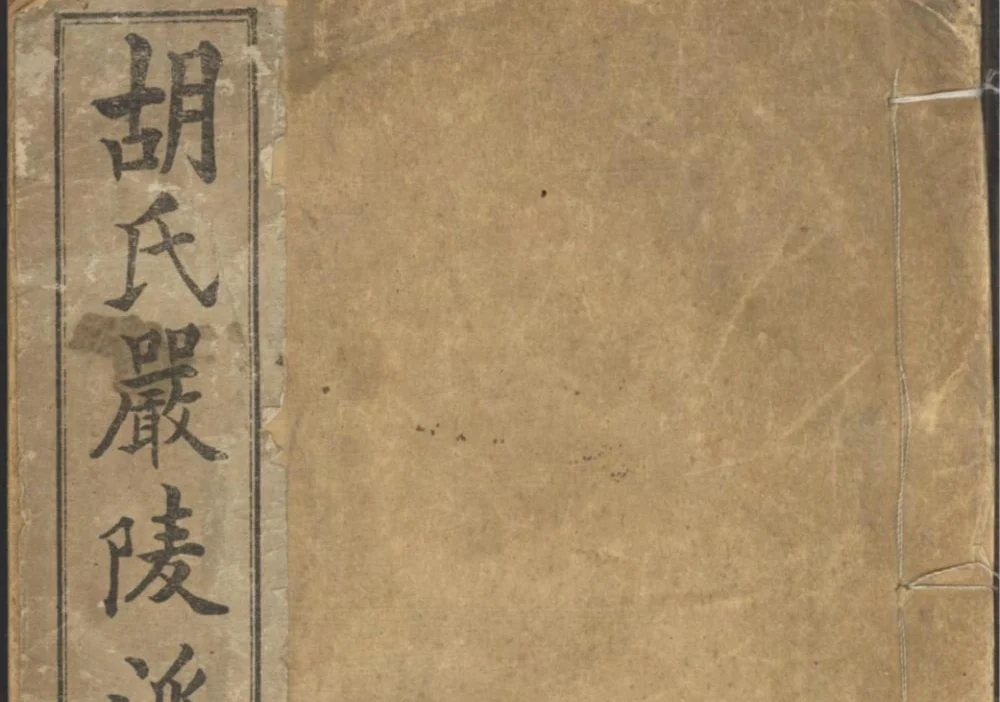 胡氏嚴陵派